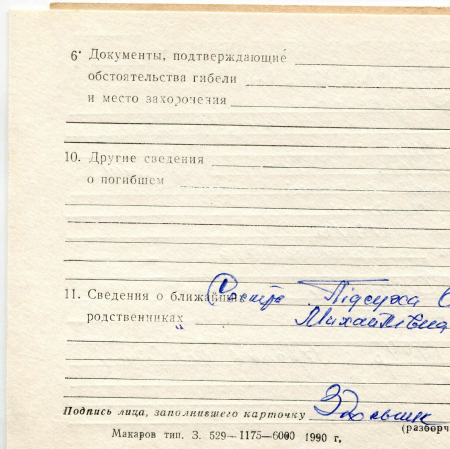 6· Документы, подтверждающие
обстоятельства гибели
и место захоронения
10. Другие сведения
о погибшем
11. Сведения о ближайших Сестра Підсуха
родственниках Михайлівна
Подпись лица, заполнившего карточку
(разборч
Макаров тип. З. 529—1175—6000 1990 г,